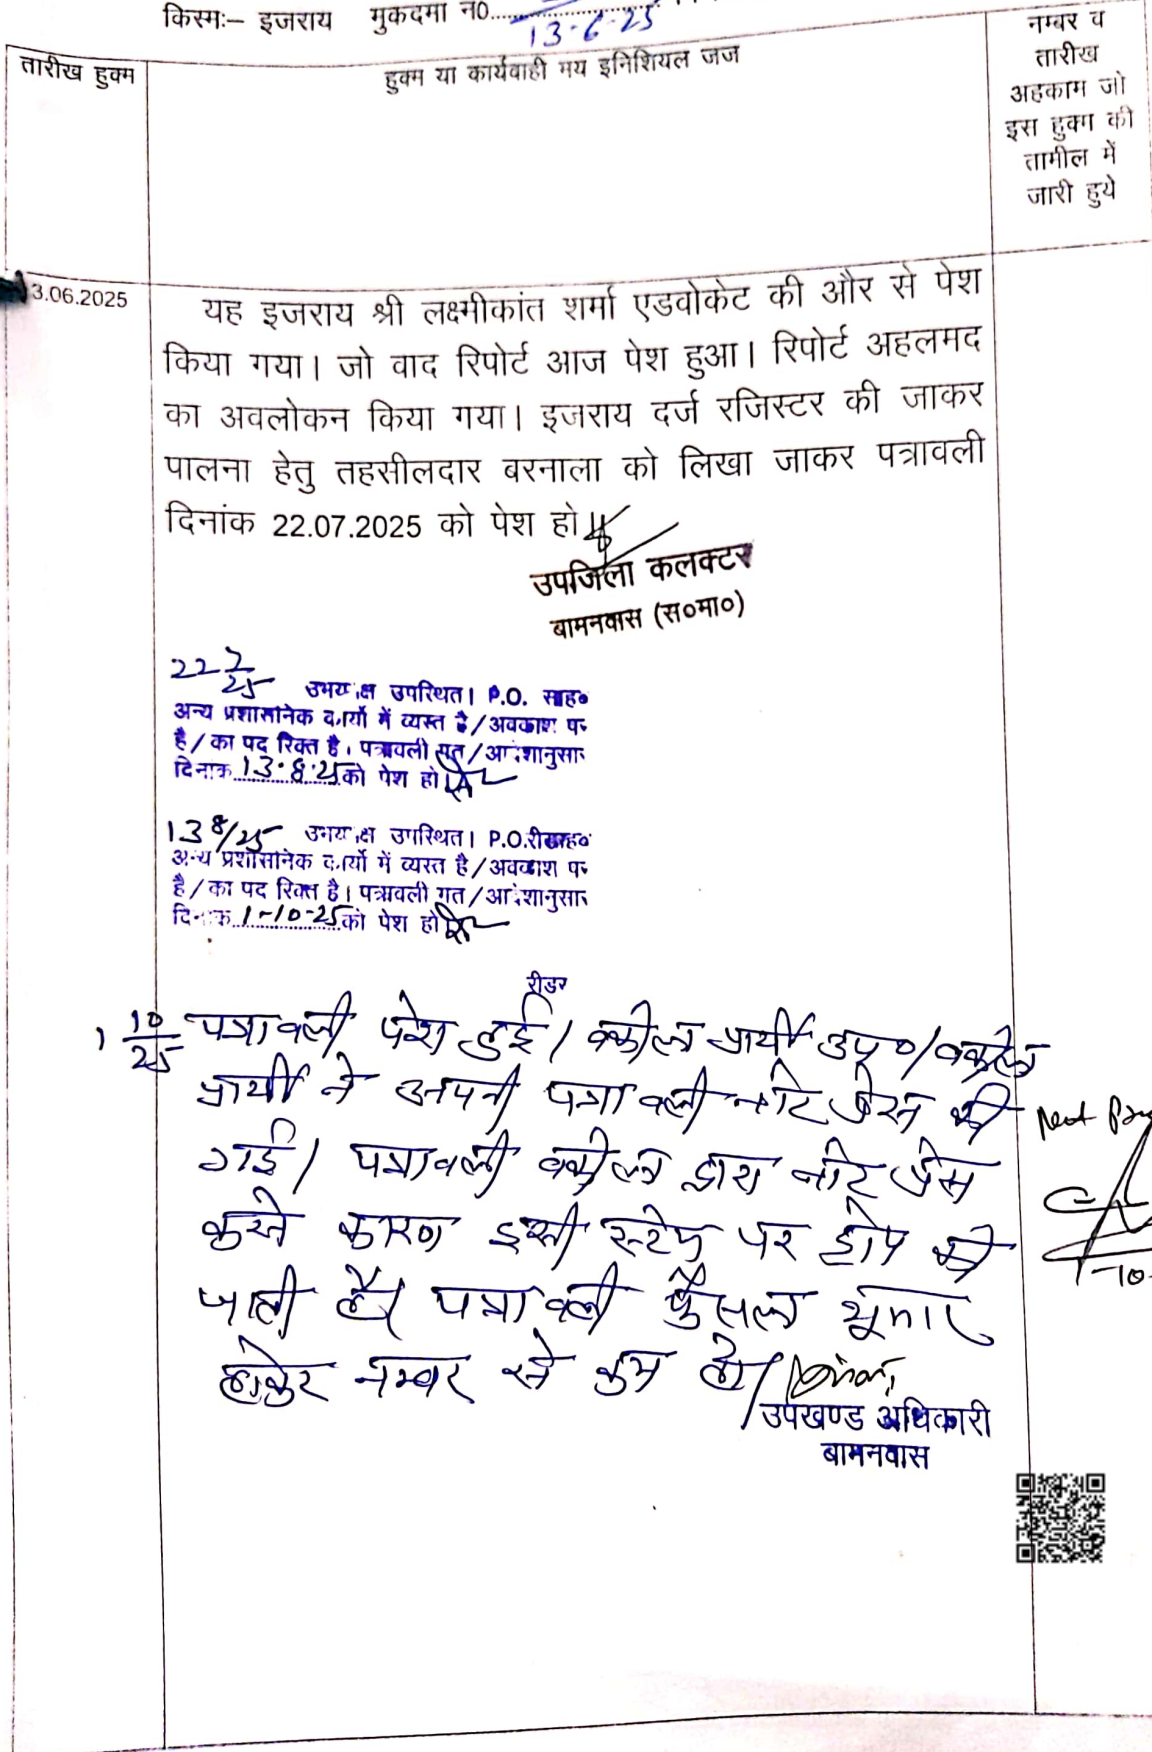 किस्मः– इजराय मुकदमा न0..........
13-6-25
तारीख हुक्म
हुक्म या कार्यवाही मय इनिशियल जज
नम्बर व
तारीख
अहकाम जो
इस हुक्म की
तामील में
जारी हुये
3.06.2025
यह इजराय श्री लक्ष्मीकांत शर्मा एडवोकेट की और से पेश
किया गया। जो वाद रिपोर्ट आज पेश हुआ। रिपोर्ट अहलमद
का अवलोकन किया गया। इजराय दर्ज रजिस्टर की जाकर
पालना हेतु तहसीलदार बरनाला को लिखा जाकर पत्रावली
दिनांक 22.07.2025 को पेश हो
उपजिला कलक्टर
बामनवास (स०मा०)
22 7/25 उभय क्ष उपस्थित। P.O. साह०
अन्य प्रशासनिक कार्यो में व्यस्त है/अवकाश पर
है/का पद रिक्त है। पत्रावली गत/आदेशानुसार
दिनाक 13.8.25 को पेश हो
13 8/25 उभय क्ष उपस्थित। P.O.
अन्य प्रशासनिक कार्यो में व्यस्त है/अवकाश पर
है/का पद रिक्त है। पत्रावली गत/आदेशानुसार
दिनाक 1-10-25 को पेश हो
रीडर
1 10/25 पत्रावली पेश हुई। वकील प्रार्थी उप०/वकील
प्रार्थी ने अपनी पत्रावली नोट प्रेस की
गई। पत्रावली वकील द्वारा नोट प्रेस
करने कारण इसी स्टेप पर ड्रोप की
जाती है। पत्रावली फैसल शुमार
होकर नम्बर से कम हो।
Not
1-10
उपखण्ड अधिकारी
बामनवास